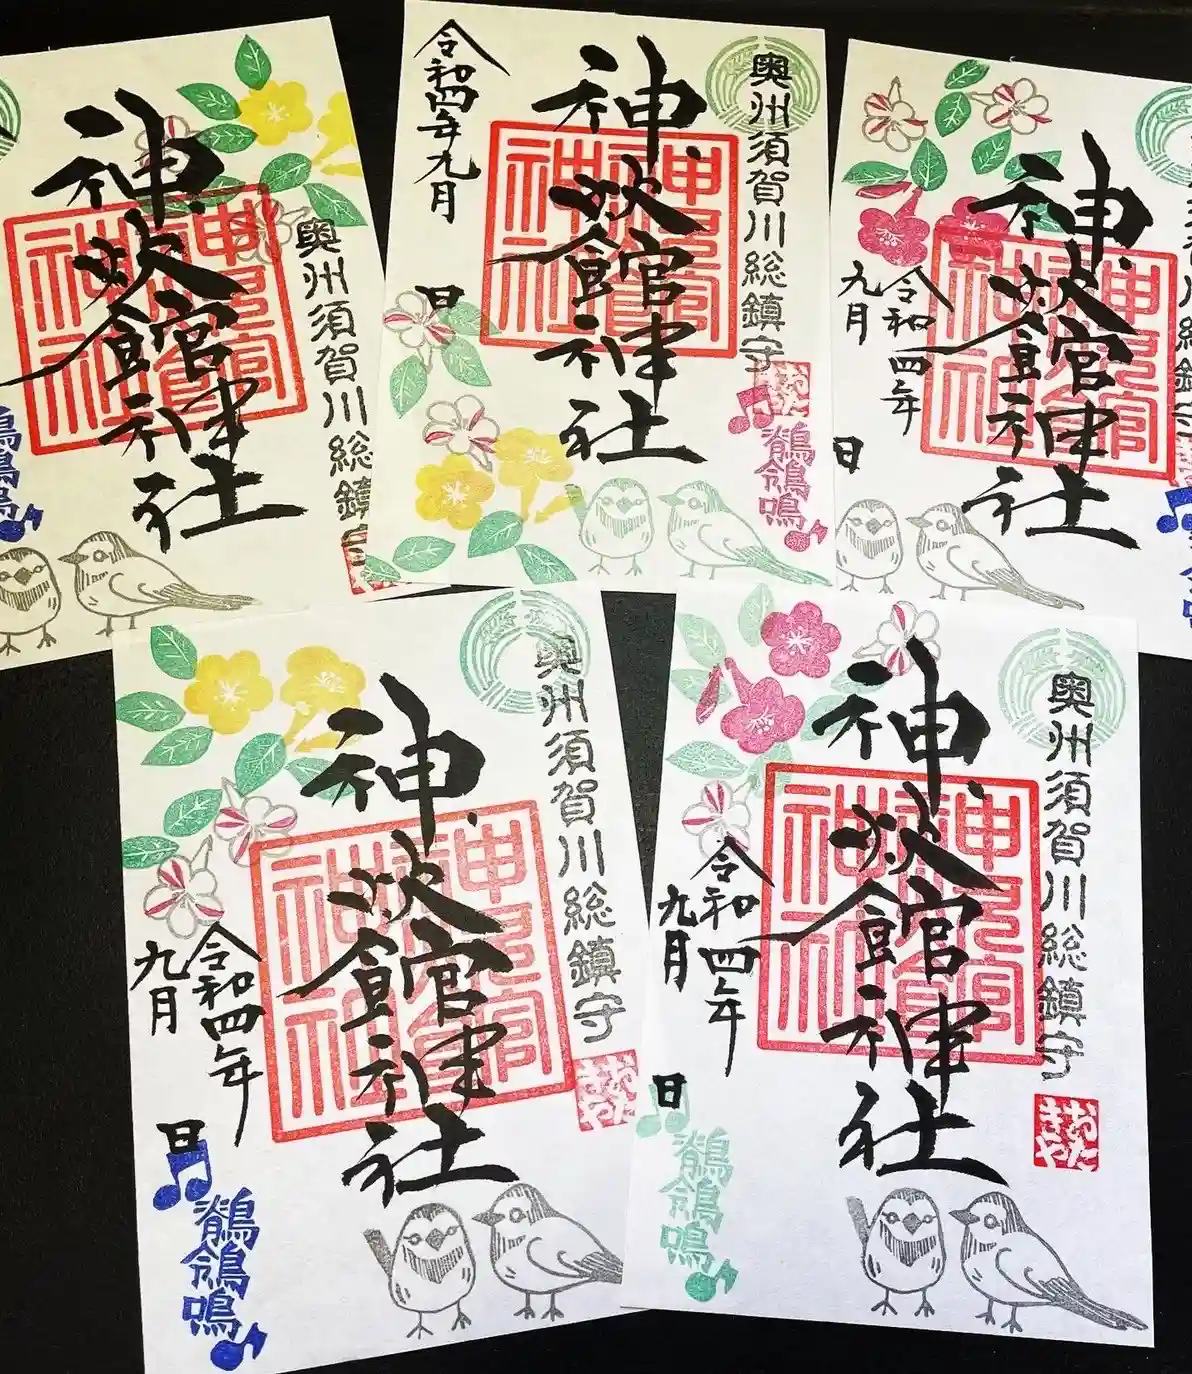 奥州須賀川総鎮守
神炊館神社
奥州須賀川総鎮守
おた
鶺鴒鳴
神炊館神社
令和四年九月
日
神炊館神社
令和四年
九月
日
奥州須賀川総鎮守
おた
きや
神炊館神社
令和四年
九月
日
鶺鴒鳴
奥州須賀川総鎮守
おた
きや
神炊館神社
令和四年
九月
日
鶺鴒鳴